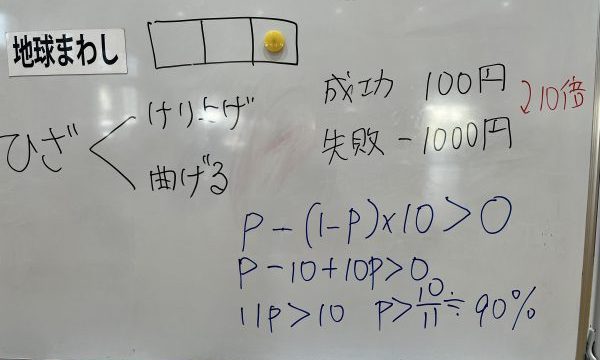 地球まわし
ひざ
けり上げ
曲げる
成功 100円
失敗 -1000円
10倍
P-(1-P)×10>0
P-10+10P>0
11P>10 P>10/11≒90%